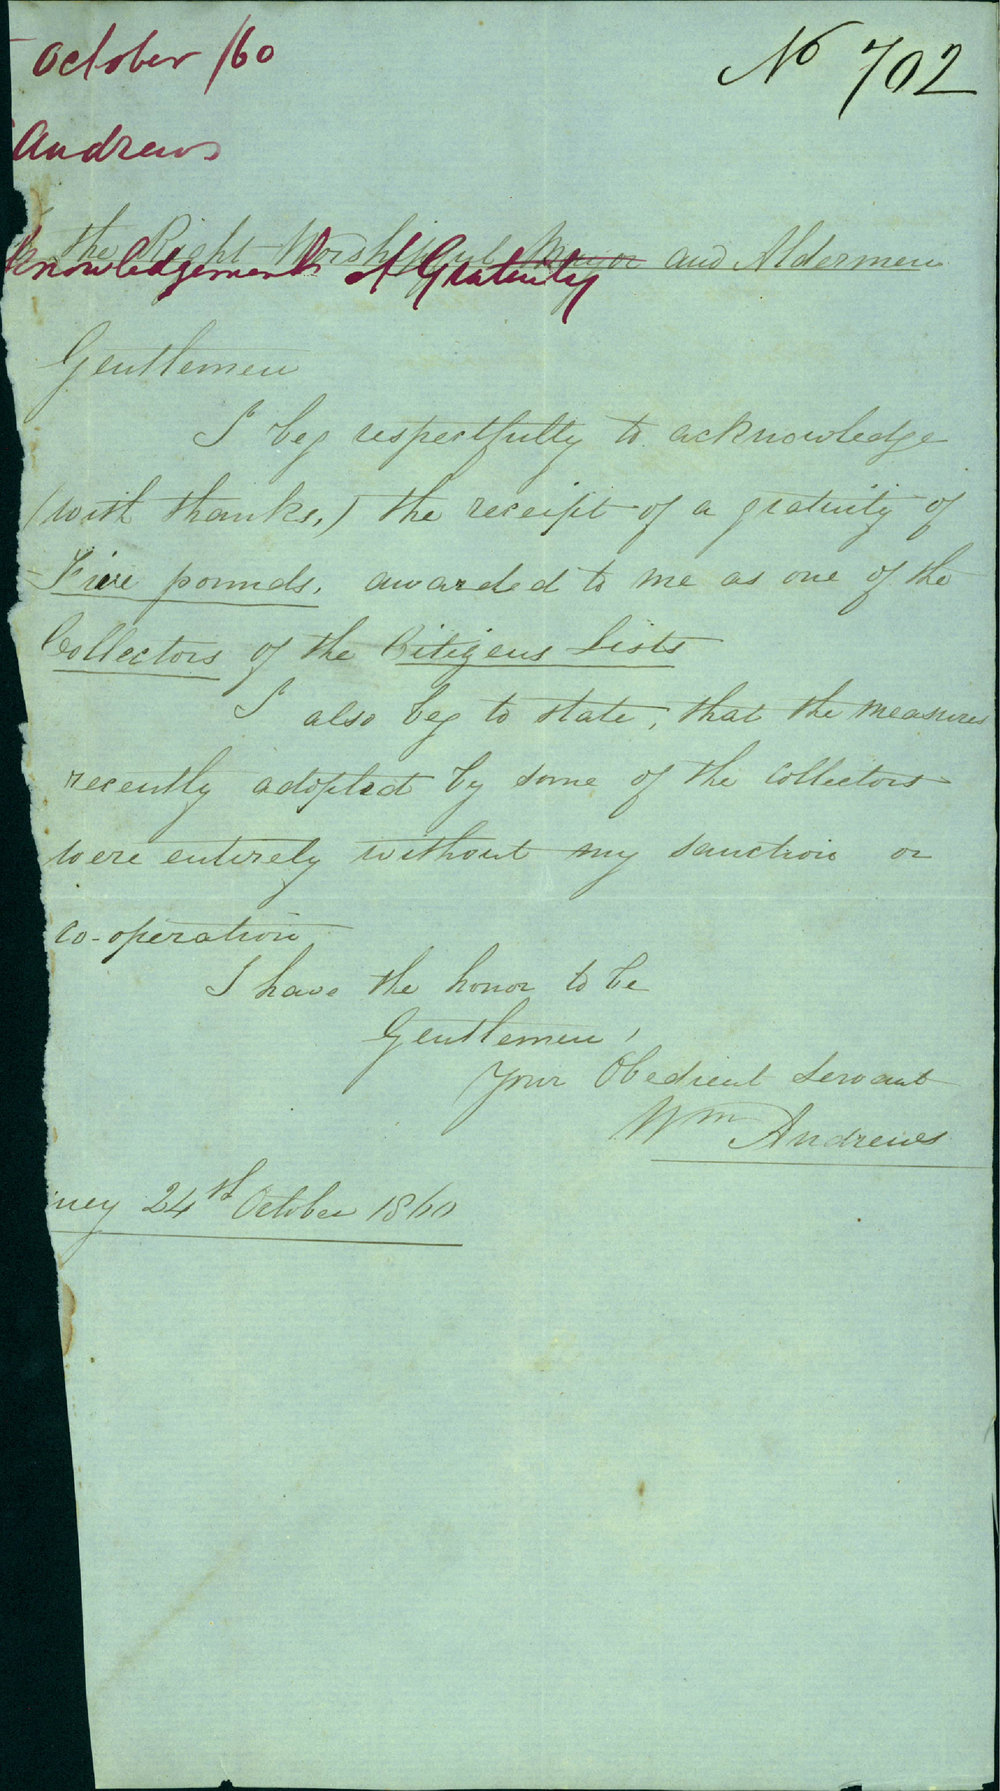 October /60
No 702
Andrews
the Right Worshipful Mayor and Aldermen
knowledgement of Gratuity
Gentlemen
I beg respectfully to acknowledge
(with thanks,) the receipt of a gratuity of
Five pounds, awarded to me as one of the
Collectors of the Citizens Lists
I also beg to state, that the measures
recently adopted by some of the collectors
were entirely without my sanction or
co-operation
I have the honor to be
Gentlemen,
Your Obedient Servant
Wm Andrews
ney 24th October 1860